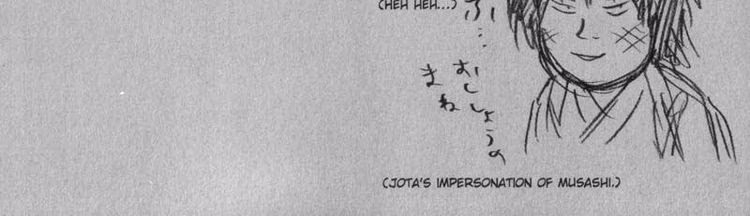 (HEH HEH...)
ふ…
おししょうの
まね
(JOTA'S IMPERSONATION OF MUSASHI.)